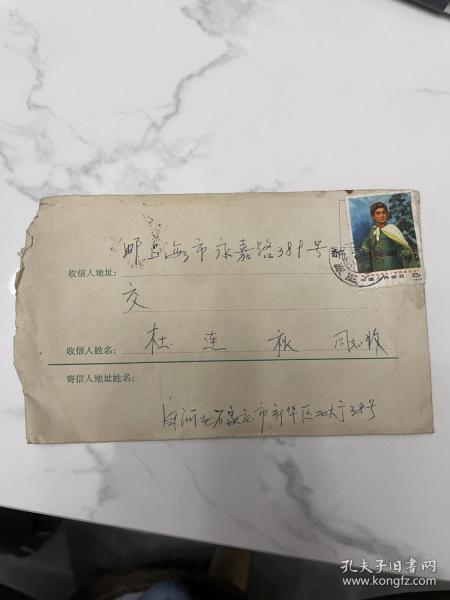 收信人地址: 邮上海市永嘉路389号
交
收信人姓名: 杜连秋 同志收
寄信人地址姓名:
河北石家庄市新华区北大厅38号
中国人民邮政
孔夫子旧书网
www.kongfz.com